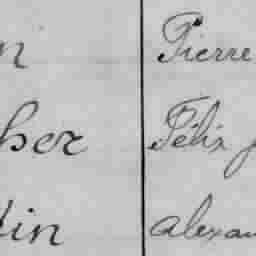 n Pierre
her Félix
tin Alexan